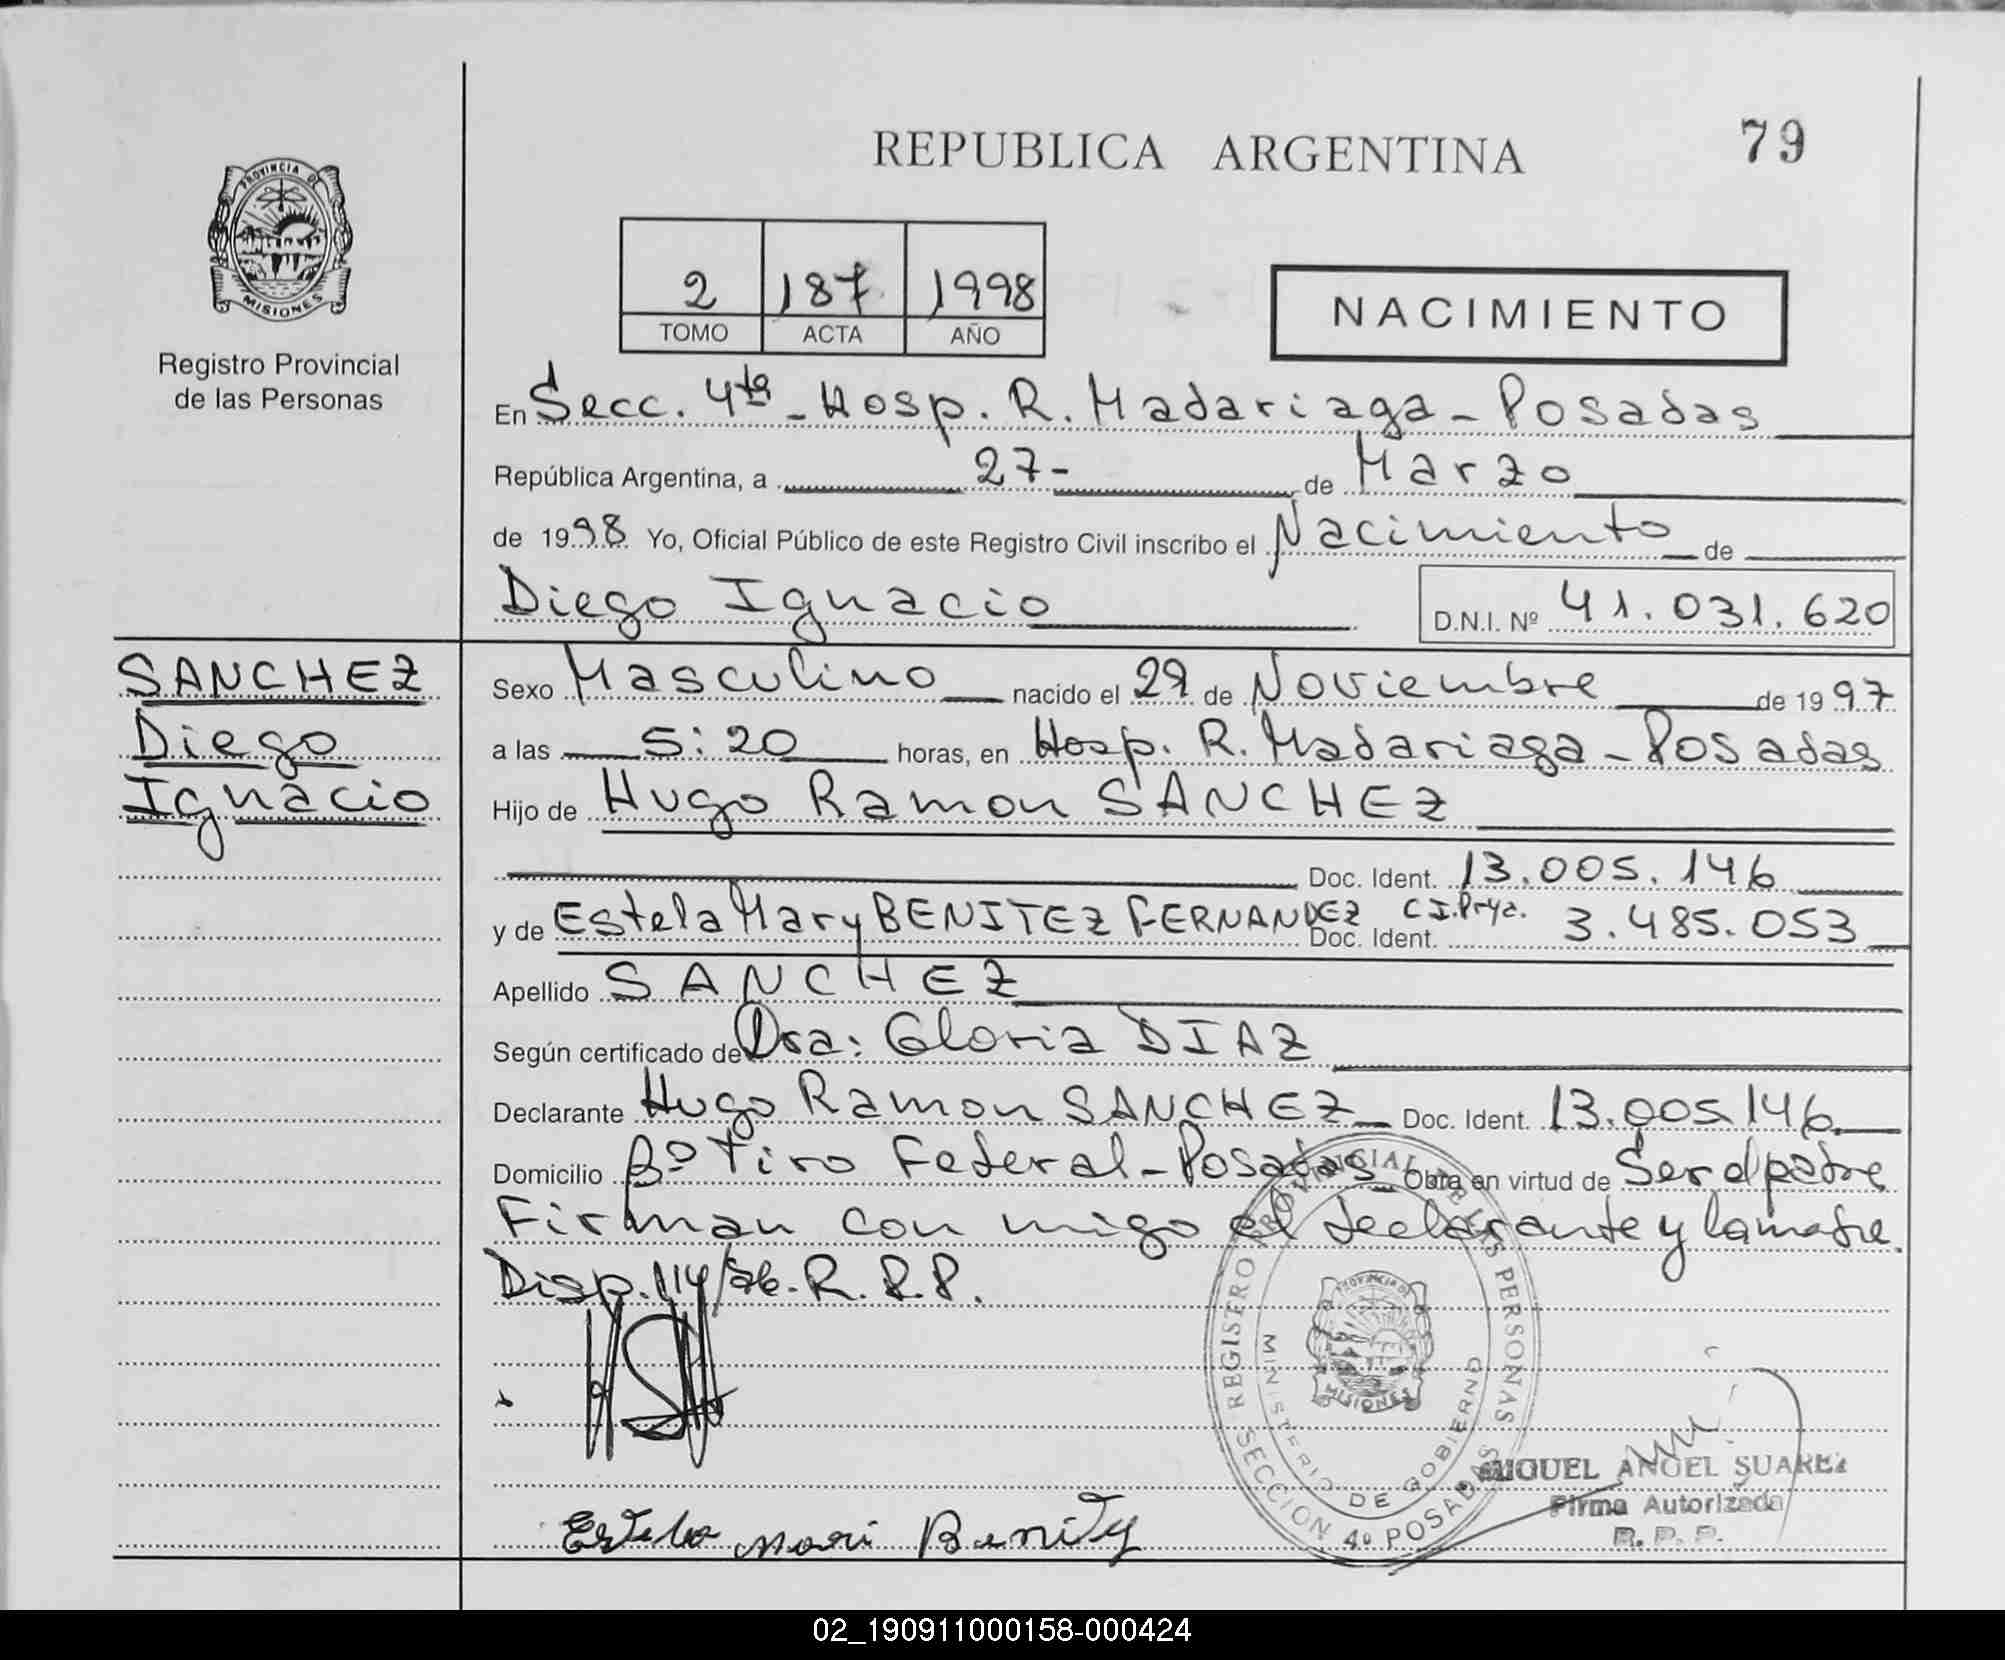 REPUBLICA ARGENTINA
79
PROVINCIA DE
MISIONES
Registro Provincial
de las Personas
2 187 1998
TOMO ACTA AÑO
NACIMIENTO
En Secc. 4ta - Hosp. R. Madariaga - Posadas
República Argentina, a 27- de Marzo
de 1998 Yo, Oficial Público de este Registro Civil inscribo el Nacimiento de
Diego Ignacio D.N.I. Nº 41.031.620
SANCHEZ
Diego
Ignacio
Sexo Masculino nacido el 29 de Noviembre de 1997
a las 5:20 horas, en Hosp. R. Madariaga - Posadas
Hijo de Hugo Ramon SANCHEZ
Doc. Ident. 13.005.146
y de Estela Mary BENITEZ FERNANDEZ Doc. Ident. C.I. Prya. 3.485.053
Apellido SANCHEZ
Según certificado de Dra: Gloria DIAZ
Declarante Hugo Ramon SANCHEZ Doc. Ident. 13.005.146
Domicilio Bº Tiro Federal - Posadas Obra en virtud de Ser el padre
Firman con migo el declarante y la madre.
Disp. 114/96. R.P.P.
REGISTRO PROVINCIAL DE LAS PERSONAS
SECCION 4º POSADAS
MINISTERIO DE GOBIERNO
PROVINCIA DE
MISIONES
MIGUEL ANGEL SUAREZ
Firma Autorizada
R. P. P.
Estela mari Benitez
02_190911000158-000424